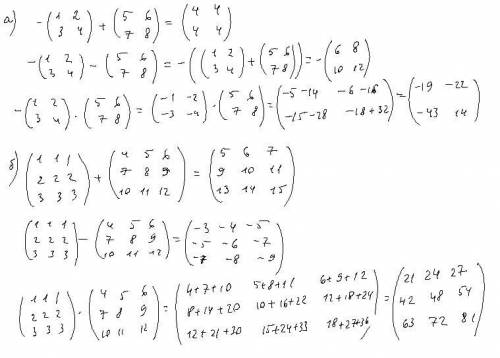 а) -(1 2; 3 4) + (5 6; 7 8) = (4 4; 4 4)
-(1 2; 3 4) - (5 6; 7 8) = -((1 2; 3 4) + (5 6; 7 8)) = -(6 8; 10 12)
-(1 2; 3 4) · (5 6; 7 8) = (-1 -2; -3 -4) · (5 6; 7 8) = (-5-14 -6-16; -15-28 -18+32) = (-19 -22; -43 14)
б) (1 1 1; 2 2 2; 3 3 3) + (4 5 6; 7 8 9; 10 11 12) = (5 6 7; 9 10 11; 13 14 15)
(1 1 1; 2 2 2; 3 3 3) - (4 5 6; 7 8 9; 10 11 12) = (-3 -4 -5; -5 -6 -7; -7 -8 -9)
(1 1 1; 2 2 2; 3 3 3) · (4 5 6; 7 8 9; 10 11 12) = (4+7+10 5+8+11 6+9+12; 8+14+20 10+16+22 12+18+24; 12+21+30 15+24+33 18+27+36) = (21 24 27; 42 48 54; 63 72 81)